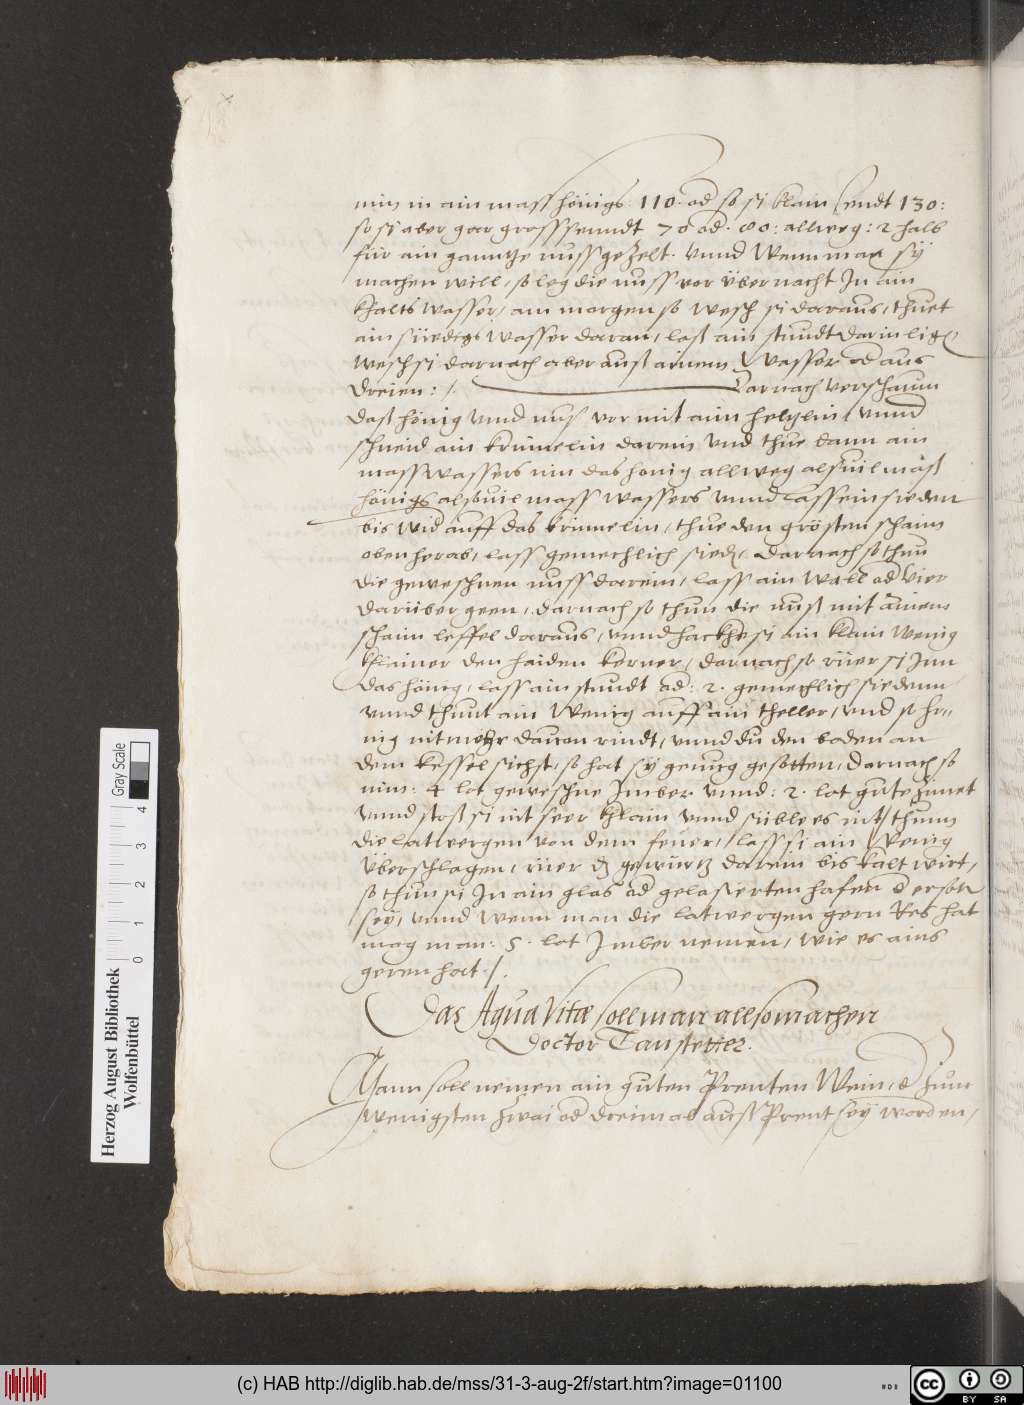 nim in ain mass hönigs 110. od so si klain sendt 130:
so si aber gar gross senndt 70 od. 80: allweg: 2 halb
für ain gantze nuss gezelt. vnnd Wenn man sÿ
machen will, so leg die nuss vor vbernacht In ain
khalts wasser, am morgen so wesch si daraus, thuet
ain siedigs wasser daran, lass ain stundt darin lign
wesch si darnach aber auss ainem Wasser od aus
dreien: /. Darnach verschaum
dass hönig vnnd nuss vor mit aim helzlin vnnd
schneid ain krimelin darein vnd thue dann ain
mass wassers nim das honig allweg alsuil mass
hönigs alsouil mass wassers vnnd lass ein sieden
bis wid auff das krimelin, thue den grösten schaim
oben herab, lass gemechlich siedn, Darnach so thuu
die geweschnen nuss darein, lass ain wall od vier
darüber geen, darnach so thun die nuss mit ainem
schaim leffel daraus, vnnd hackhe si ain klain wenig
khlainer den haiden kerner, darnach so rüer si Inn
das hönig, lass ain stundt od: 2. gemechlich siedenn
vnnd thuut ain Wenig auff ain theller, vnd so hö-
nig nit mehr dauon rindt, vnnd du den boden an
dem kessel sichst, so hat sÿ genurg gesotten, Darnach so
nim: 4 lot geweschne Imber vnnd: 2. lot gute Zimet
vnnd stoss si nit seer khlain vnnd süble es nit, thunn
die latwergen von dem feuer, lass si ain Wenig
vberschlagen, rüer dz gewürtz darein bis kalt wirt,
so thun si In ain glas od gelasierten hafen d ersotn
seÿ, vnnd Wenn man die latwergen gern Res hat
mag man: 5. lot Imber nemen, wie es ains
geren hat /.
Das Aqua Vitæ soll man allso machen
Doctor Tanstetter.
Mann soll nemen ain guten Prenten Wein, d Zum
wenigsten Zwai od dreimal auss Prent seÿ worden,
Gray Scale
0 1 2 3 4
Herzog August Bibliothek
Wolfenbüttel
(c) HAB http://diglib.hab.de/mss/31-3-aug-2f/start.htm?image=01100
cc BY SA